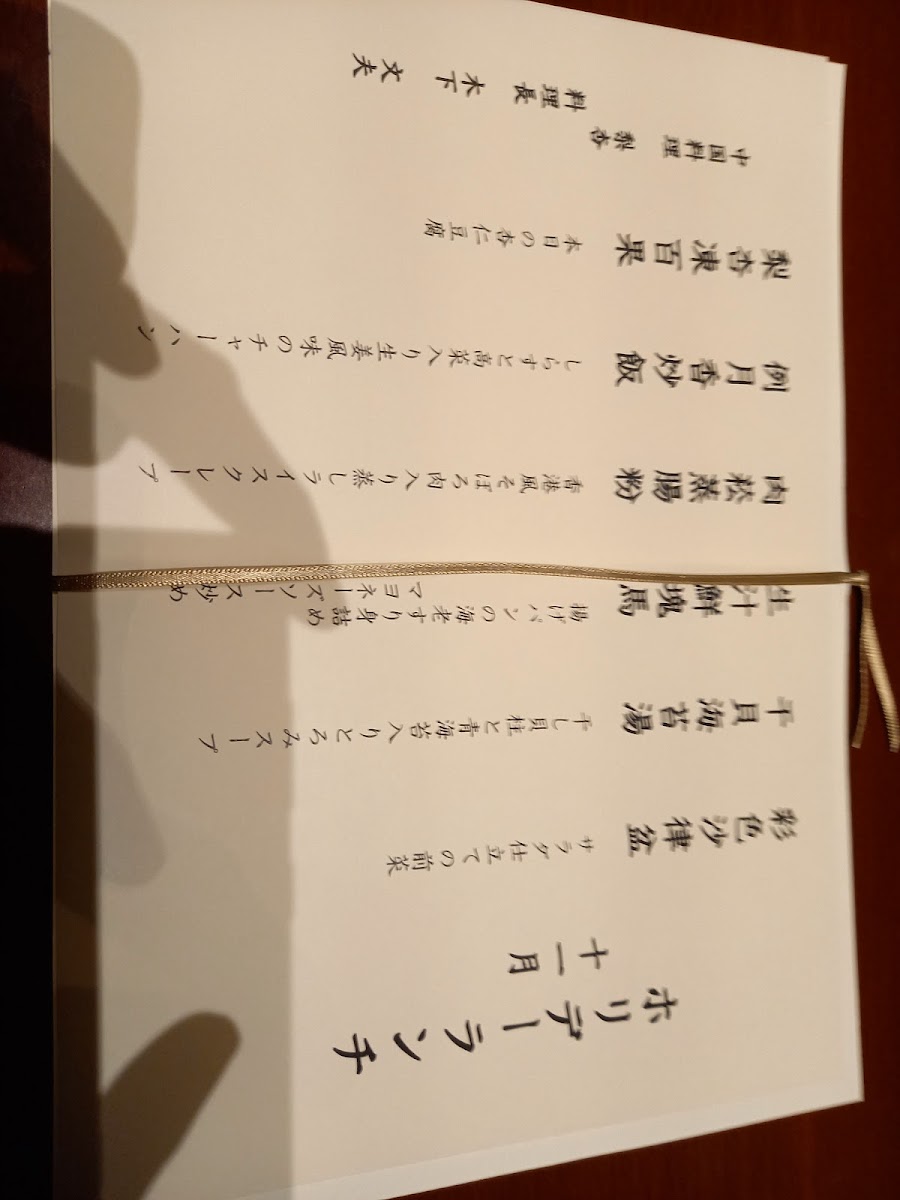 ホリデーランチ
十一月
彩色沙律盆
サラダ仕立ての前菜
干貝海苔湯
干し貝柱と青海苔入りとろみスープ
生汁鮮塊馬
揚げパンの海老すり身詰め
マヨネーズソース炒め
肉菘蒸腸粉
香港風そぼろ肉入り蒸しライスクレープ
例月香炒飯
しらすと高菜入り生姜風味のチャーハン
梨杏凍百果
本日の杏仁豆腐
中国料理 梨杏
料理長 木下 文夫